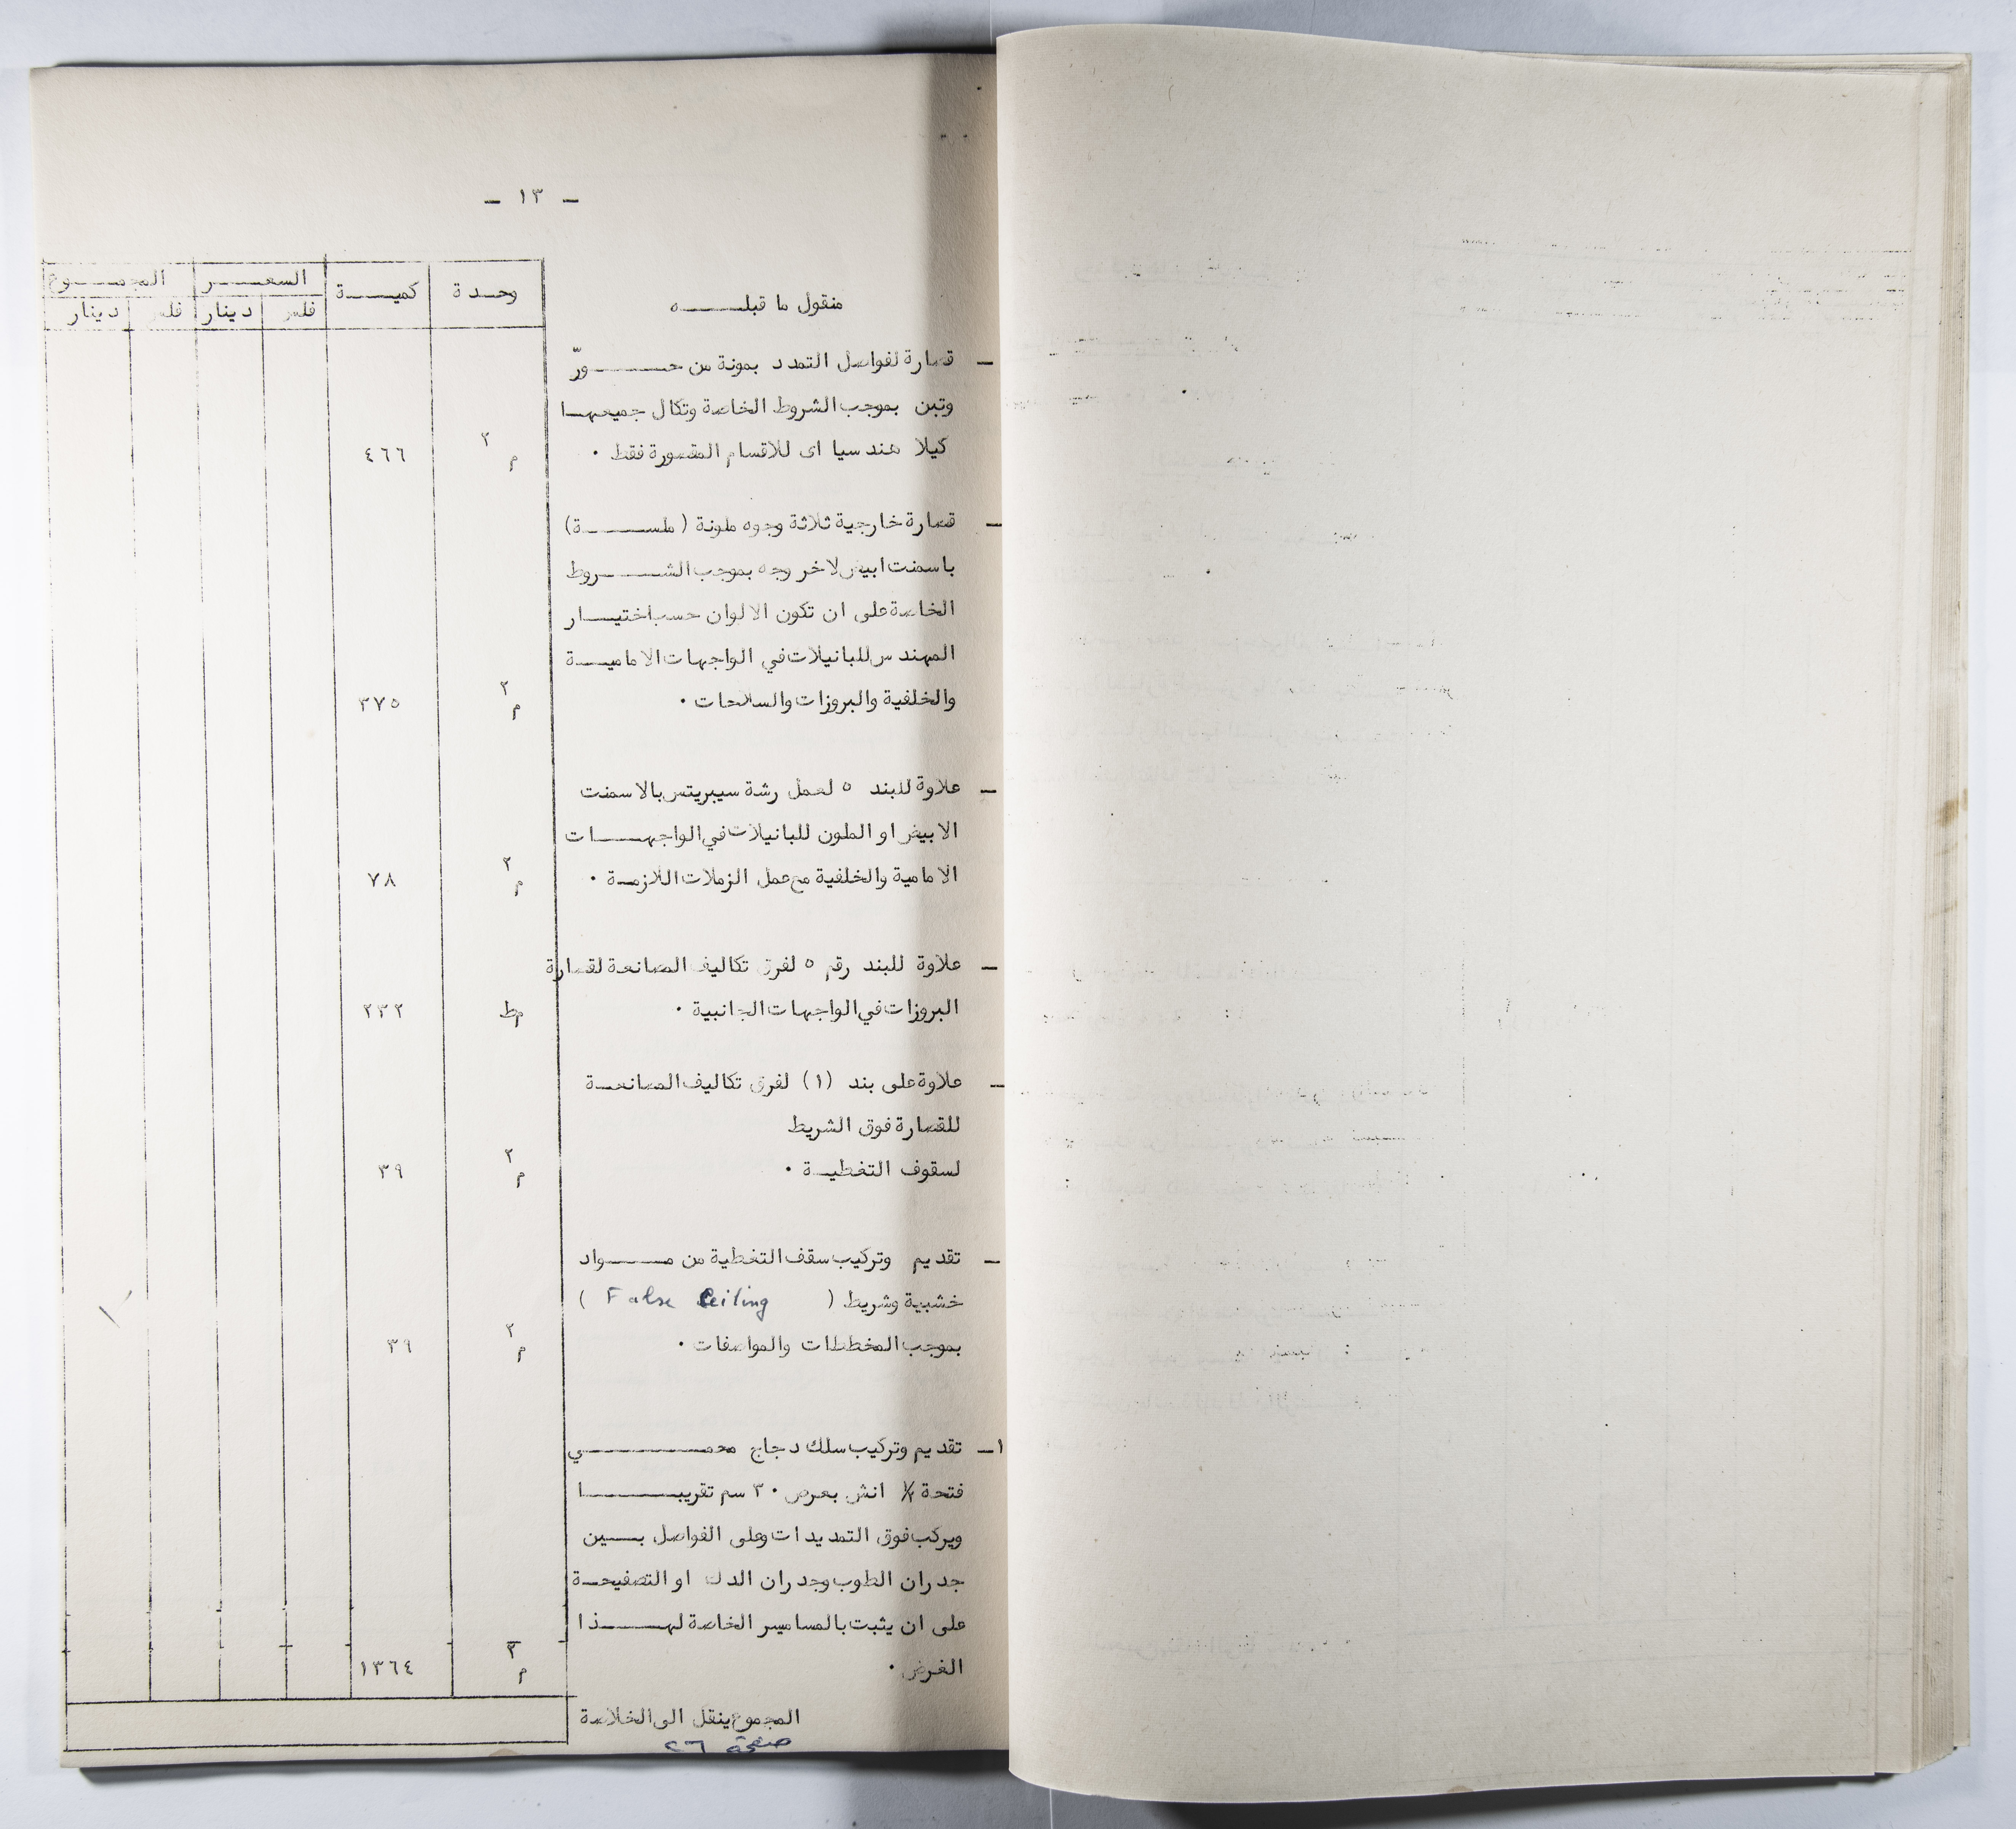 – ١٣ –
منقول ما قبلـــــه
وحدة
كميـــة
السعـــــر
المجمـــوع
فلس
دينار
فلس
دينار
– قصارة لفواصل التمدد بمونة من حـــــورّ
وتبن بموجب الشروط الخاصة وتكال جميعهـا
كيلا هندسيا اى للاقسام المقصورة فقط .
م ٢
٤٦٦
– قصارة خارجية ثلاثة وجوه ملونة ( ملســـــة )
باسمنت ابيض لاخر وجه بموجب الشـــــروط
الخاصة على ان تكون الالوان حسب اختيـــار
المهندس للبانيلات في الواجهات الاماميـــة
والخلفية والبروزات والسلاحات .
م ٢
٣٧٥
– علاوة للبند ٥ لعمل رشة سيبريتس بالاسمنت
الابيض او الملون للبانيلات في الواجهـــات
الامامية والخلفية مع عمل الزملات اللازمـة .
م ٢
٧٨
– علاوة للبند رقم ٥ لفرق تكاليف المصانعة لقصارة
البروزات في الواجهات الجانبية .
مط
٢٣٢
– علاوة على بند (١) لفرق تكاليف المصانعـة
للقصارة فوق الشريط
لسقوف التغطيـة .
م ٢
٣٩
– تقديم وتركيب سقف التغطية من مـــــواد
خشبية وشريط ( False Ceiling )
بموجب المخططات والمواصفات .
م ٢
٣٩
١– تقديم وتركيب سلك دجاج محمـــــــي
فتحة ١/٢ انش بعرض ٣٠ سم تقريبـــــا
ويركب فوق التمديدات وعلى الفواصل بـــين
جدران الطوب وجدران الدك او التصفيحـة
على ان يثبت بالمسامير الخاصة لهـــــذا
الغرض .
م ٢
١٣٦٤
المجموع ينقل الى الخلاصة
صفحة ٢٦